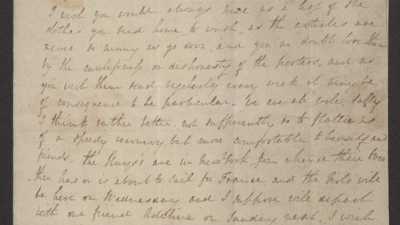 I wish you would always give us a list of the
clothes you send home to wash, as the articles are
never so many as go down, and you no doubt lose them
by the carelessness or dishonesty of the porters, and as
you visit them send regularly every week it may be
of consequence to be particular. We are all well, Sally
I think rather better not sufficiently so to flatter us
of a speedy recovery but more comfortable to herself and
friends. The are in New York from whence their
has or is about to sail for France and the will
be here on Wednesday, and I suppose will deposit
with our friend on Sunday next, I wish